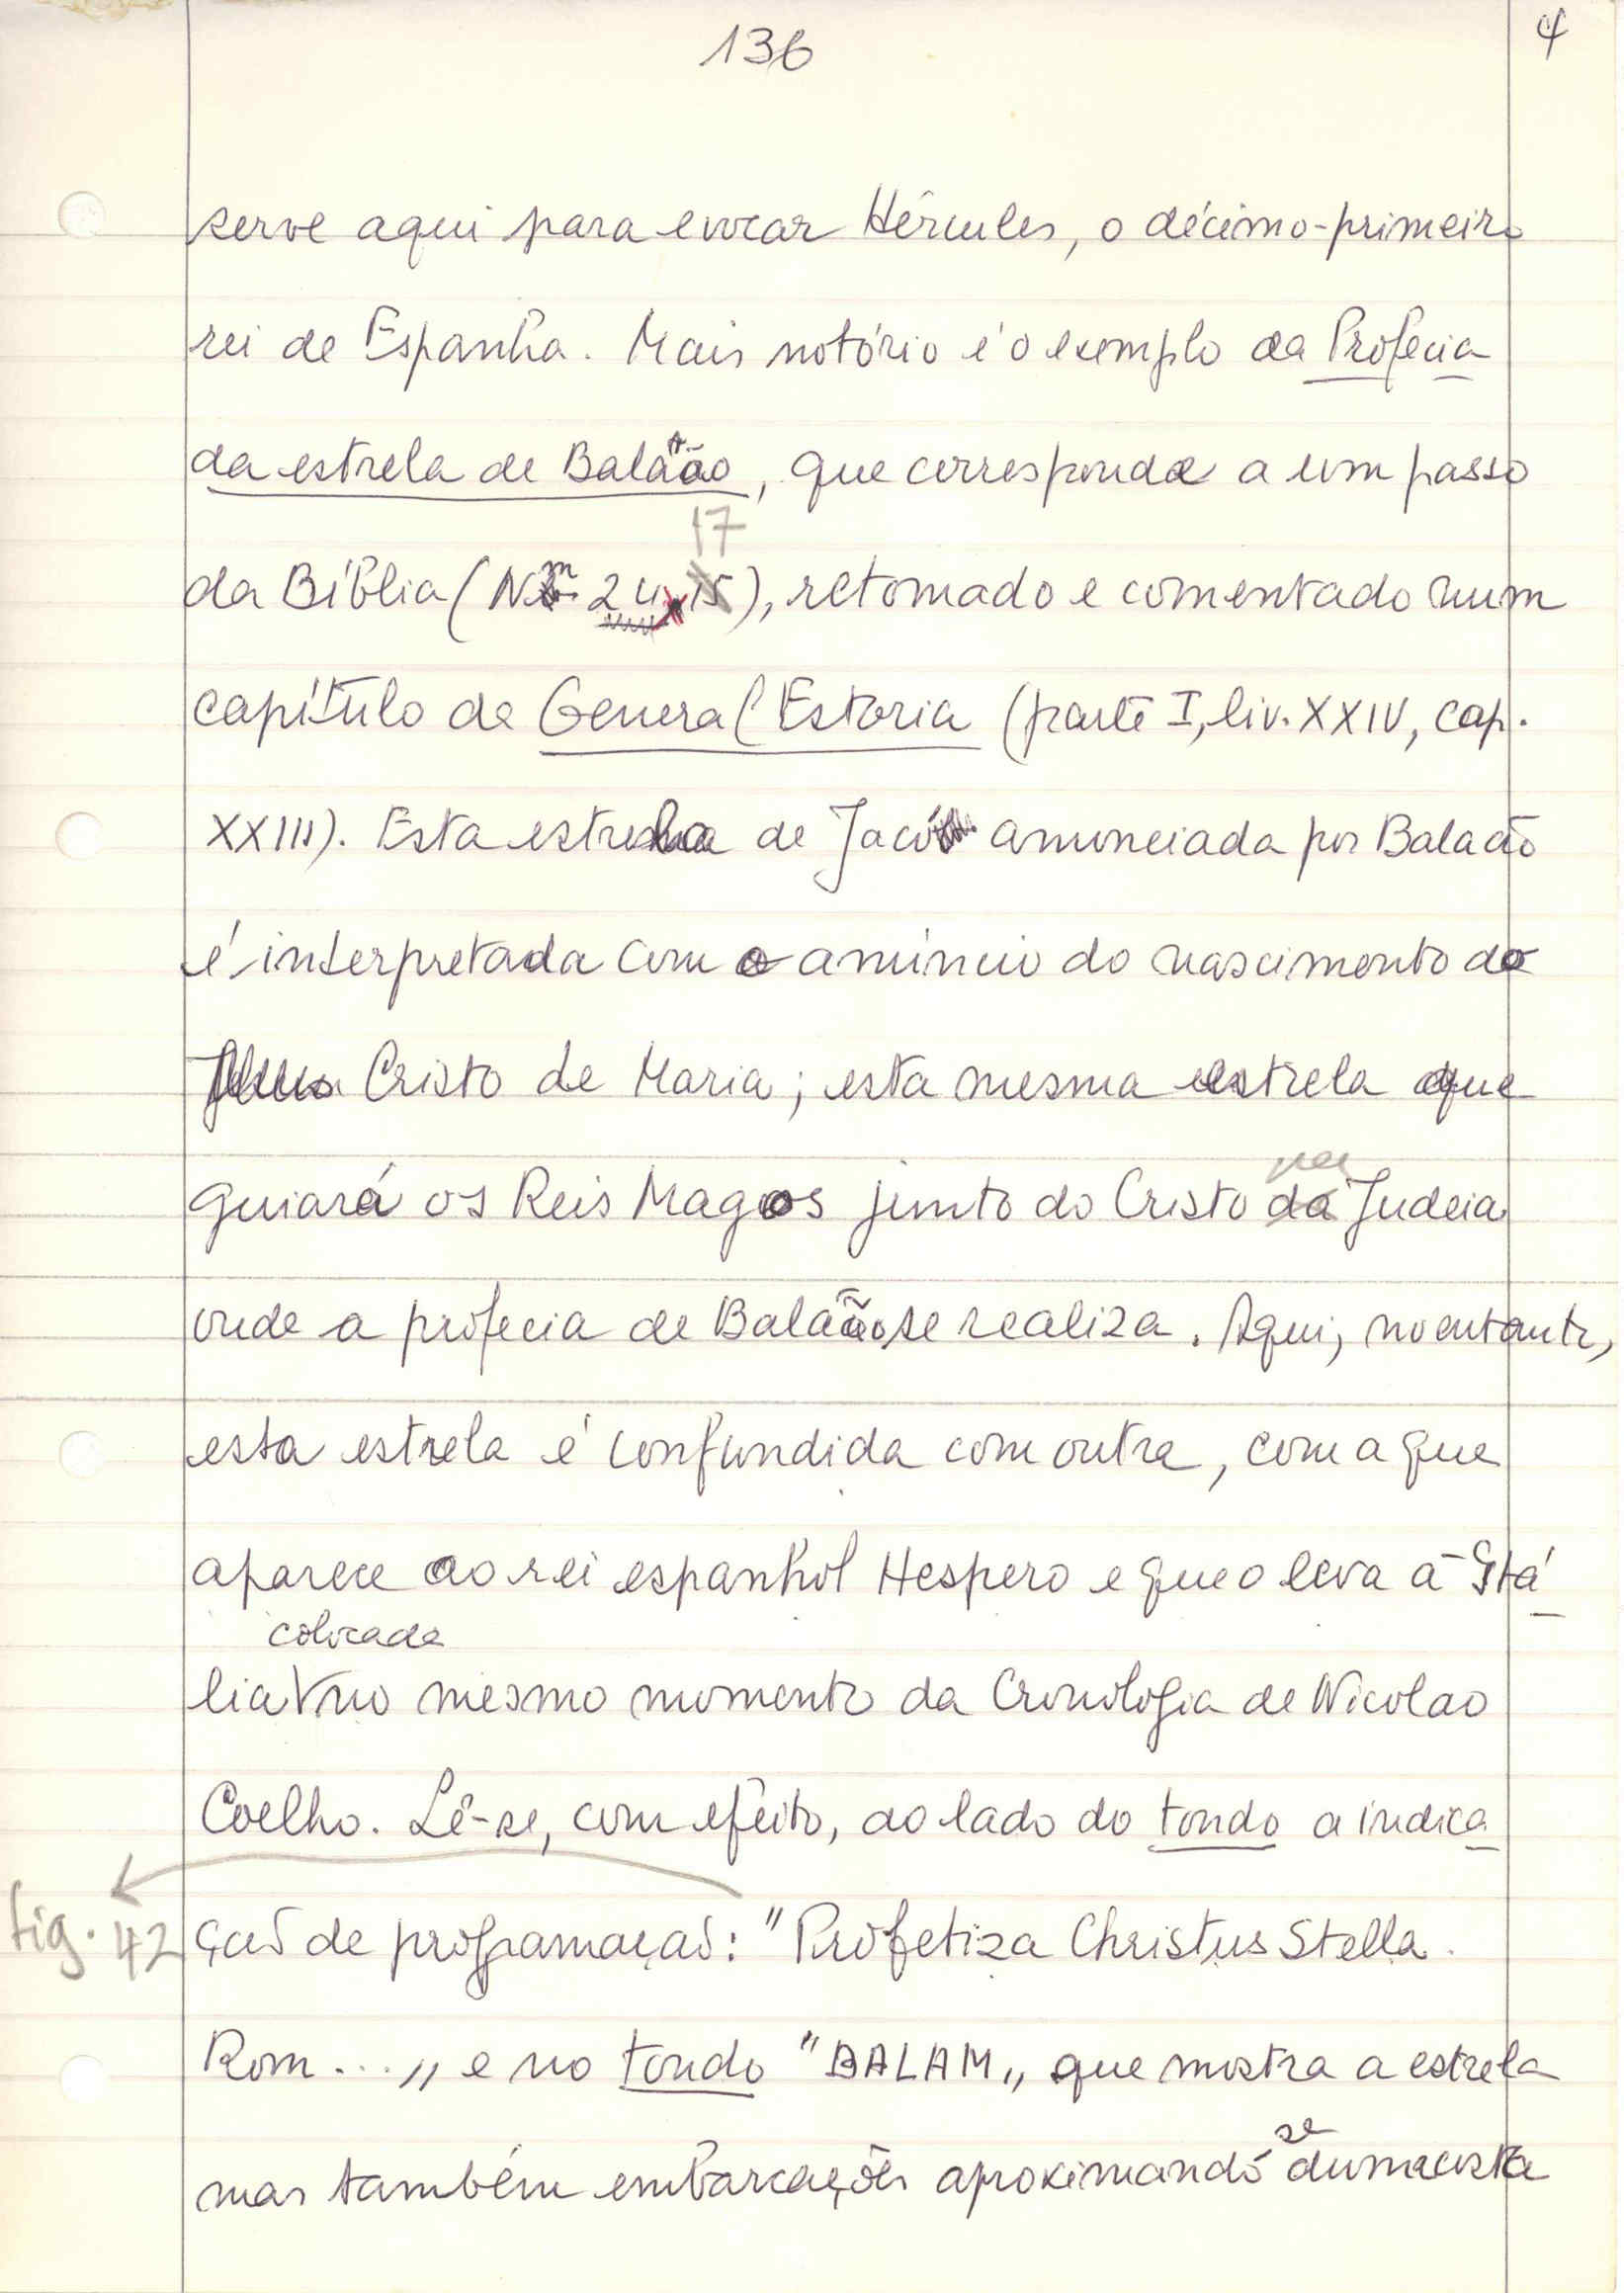 136
4
serve aqui para evocar Hércules, o décimo-primeiro
rei de Espanha. Mais notório é o exemplo da Profecia
da estrela de Balaão, que corresponde a um passo
17
da Bíblia (Nm 24, 15), retomado e comentado num
capítulo de General Estoria (parte I, liv. XXIV, cap.
XXIII). Esta estrela de Jacó anunciada por Balaão
é interpretada como anúncio do nascimento do
Cristo de Maria; esta mesma estrela que
na
guiará os Reis Magos junto do Cristo da Judeia
onde a profecia de Balaão se realiza. Aqui, no entanto,
esta estrela é confundida com outra, com a que
aparece ao rei espanhol Hespero e que o leva à Itá
colocada
lia no mesmo momento da Cronologia de Nicolao
Coelho. Lê-se, com efeito, ao lado do tondo a indica
fig. 42
ção de programação: "Profetiza Christus Stella
Rom..." e no tondo "BALAM", que mostra a estrela
se
mas também embarcações aproximando duma costa